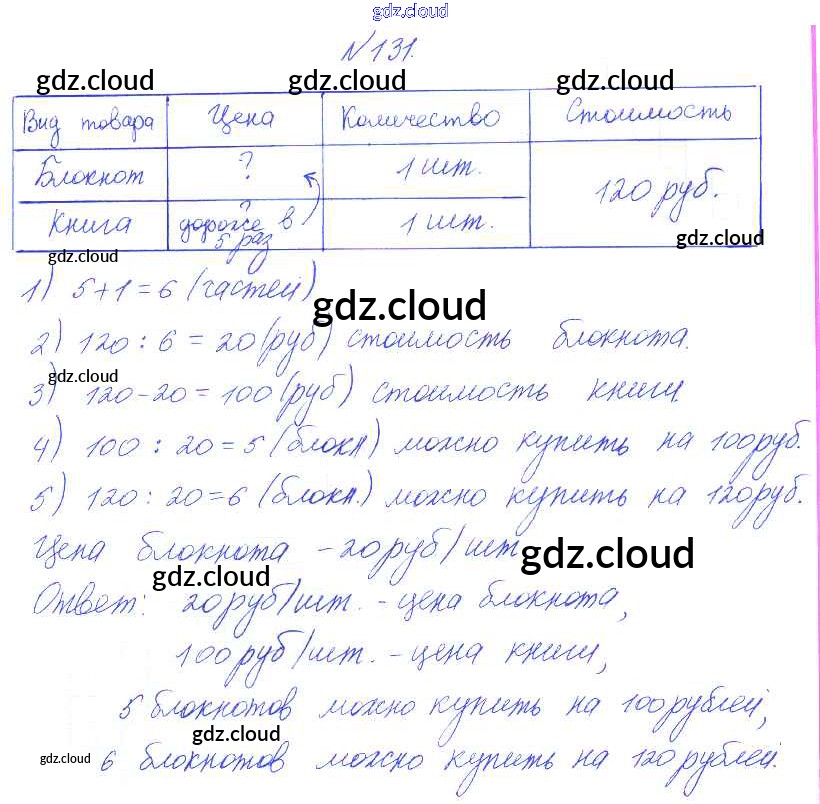 gdz.cloud
№131.
gdz.cloud gdz.cloud gdz.cloud
Вид товара Цена Количество Стоимость
Блокнот ? 1 шт. 120 руб.
Книга ? дороже в 5 раз 1 шт.
gdz.cloud
gdz.cloud
1) 5+1=6 (частей)
gdz.cloud
2) 120:6=20(руб) стоимость блокнота.
gdz.cloud
3) 120-20=100(руб) стоимость книги.
4) 100:20=5 (блокн) можно купить на 100руб.
5) 120:20=6 (блокн.) можно купить на 120руб.
Цена блокнота -20руб/шт
gdz.cloud
gdz.cloud
Ответ: 20руб/шт. -цена блокнота,
100руб/шт. -цена книги,
5 блокнотов можно купить на 100рублей,
gdz.cloud
gdz.cloud
6 блокнотов можно купить на 120рублей.